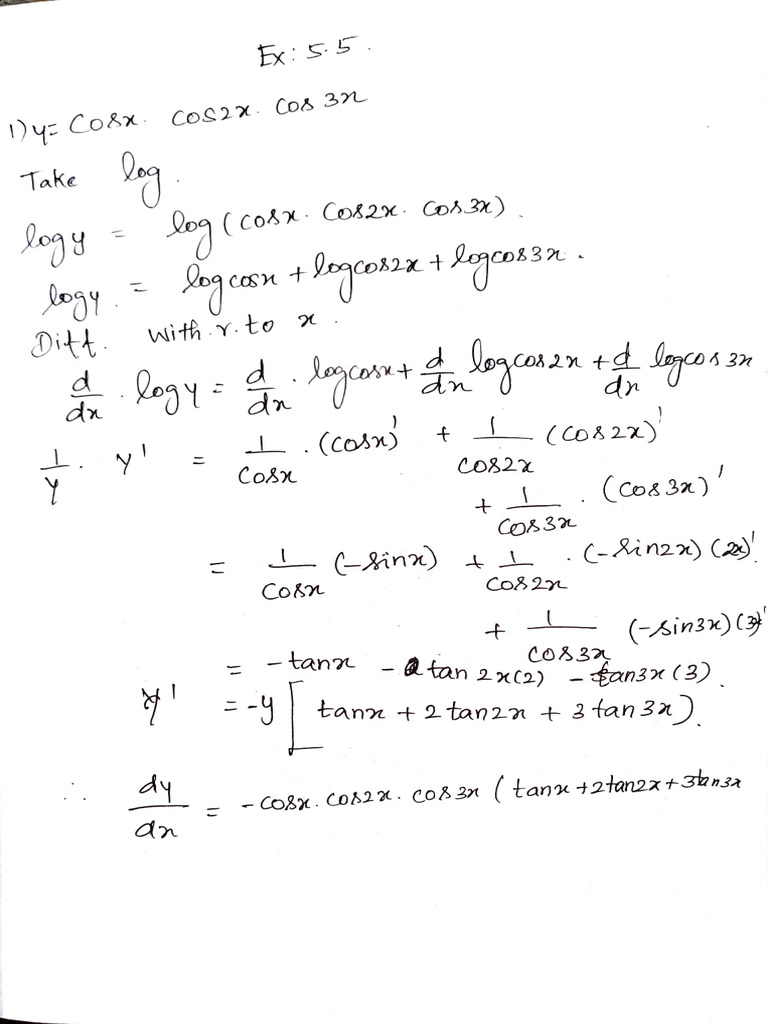 Ex: 5.5.
1) y= Cosx. cos2x. Cos 3x
Take log.
logy = log (cosx. Cos2x. cos3x).
logy. = logcosx + logcos2x + logcos3x.
Diff. with.r.to x.
d/dx . logy = d/dx . logcosx + d/dx logcos2x + d/dx logcos3x
1/y . y' = 1/cosx . (cosx)' + 1/cos2x (cos2x)'
+ 1/cos3x . (cos3x)'
= 1/cosx (-sinx) + 1/cos2x . (-sin2x) (2x)'
+ 1/cos3x (-sin3x) (3x)'
= -tanx - tan 2x(2) - tan3x (3).
y' = -y [ tanx + 2 tan2x + 3 tan 3x).
∴ dy/dx = - cosx. cos2x. cos3x ( tanx +2tan2x+3tan3x